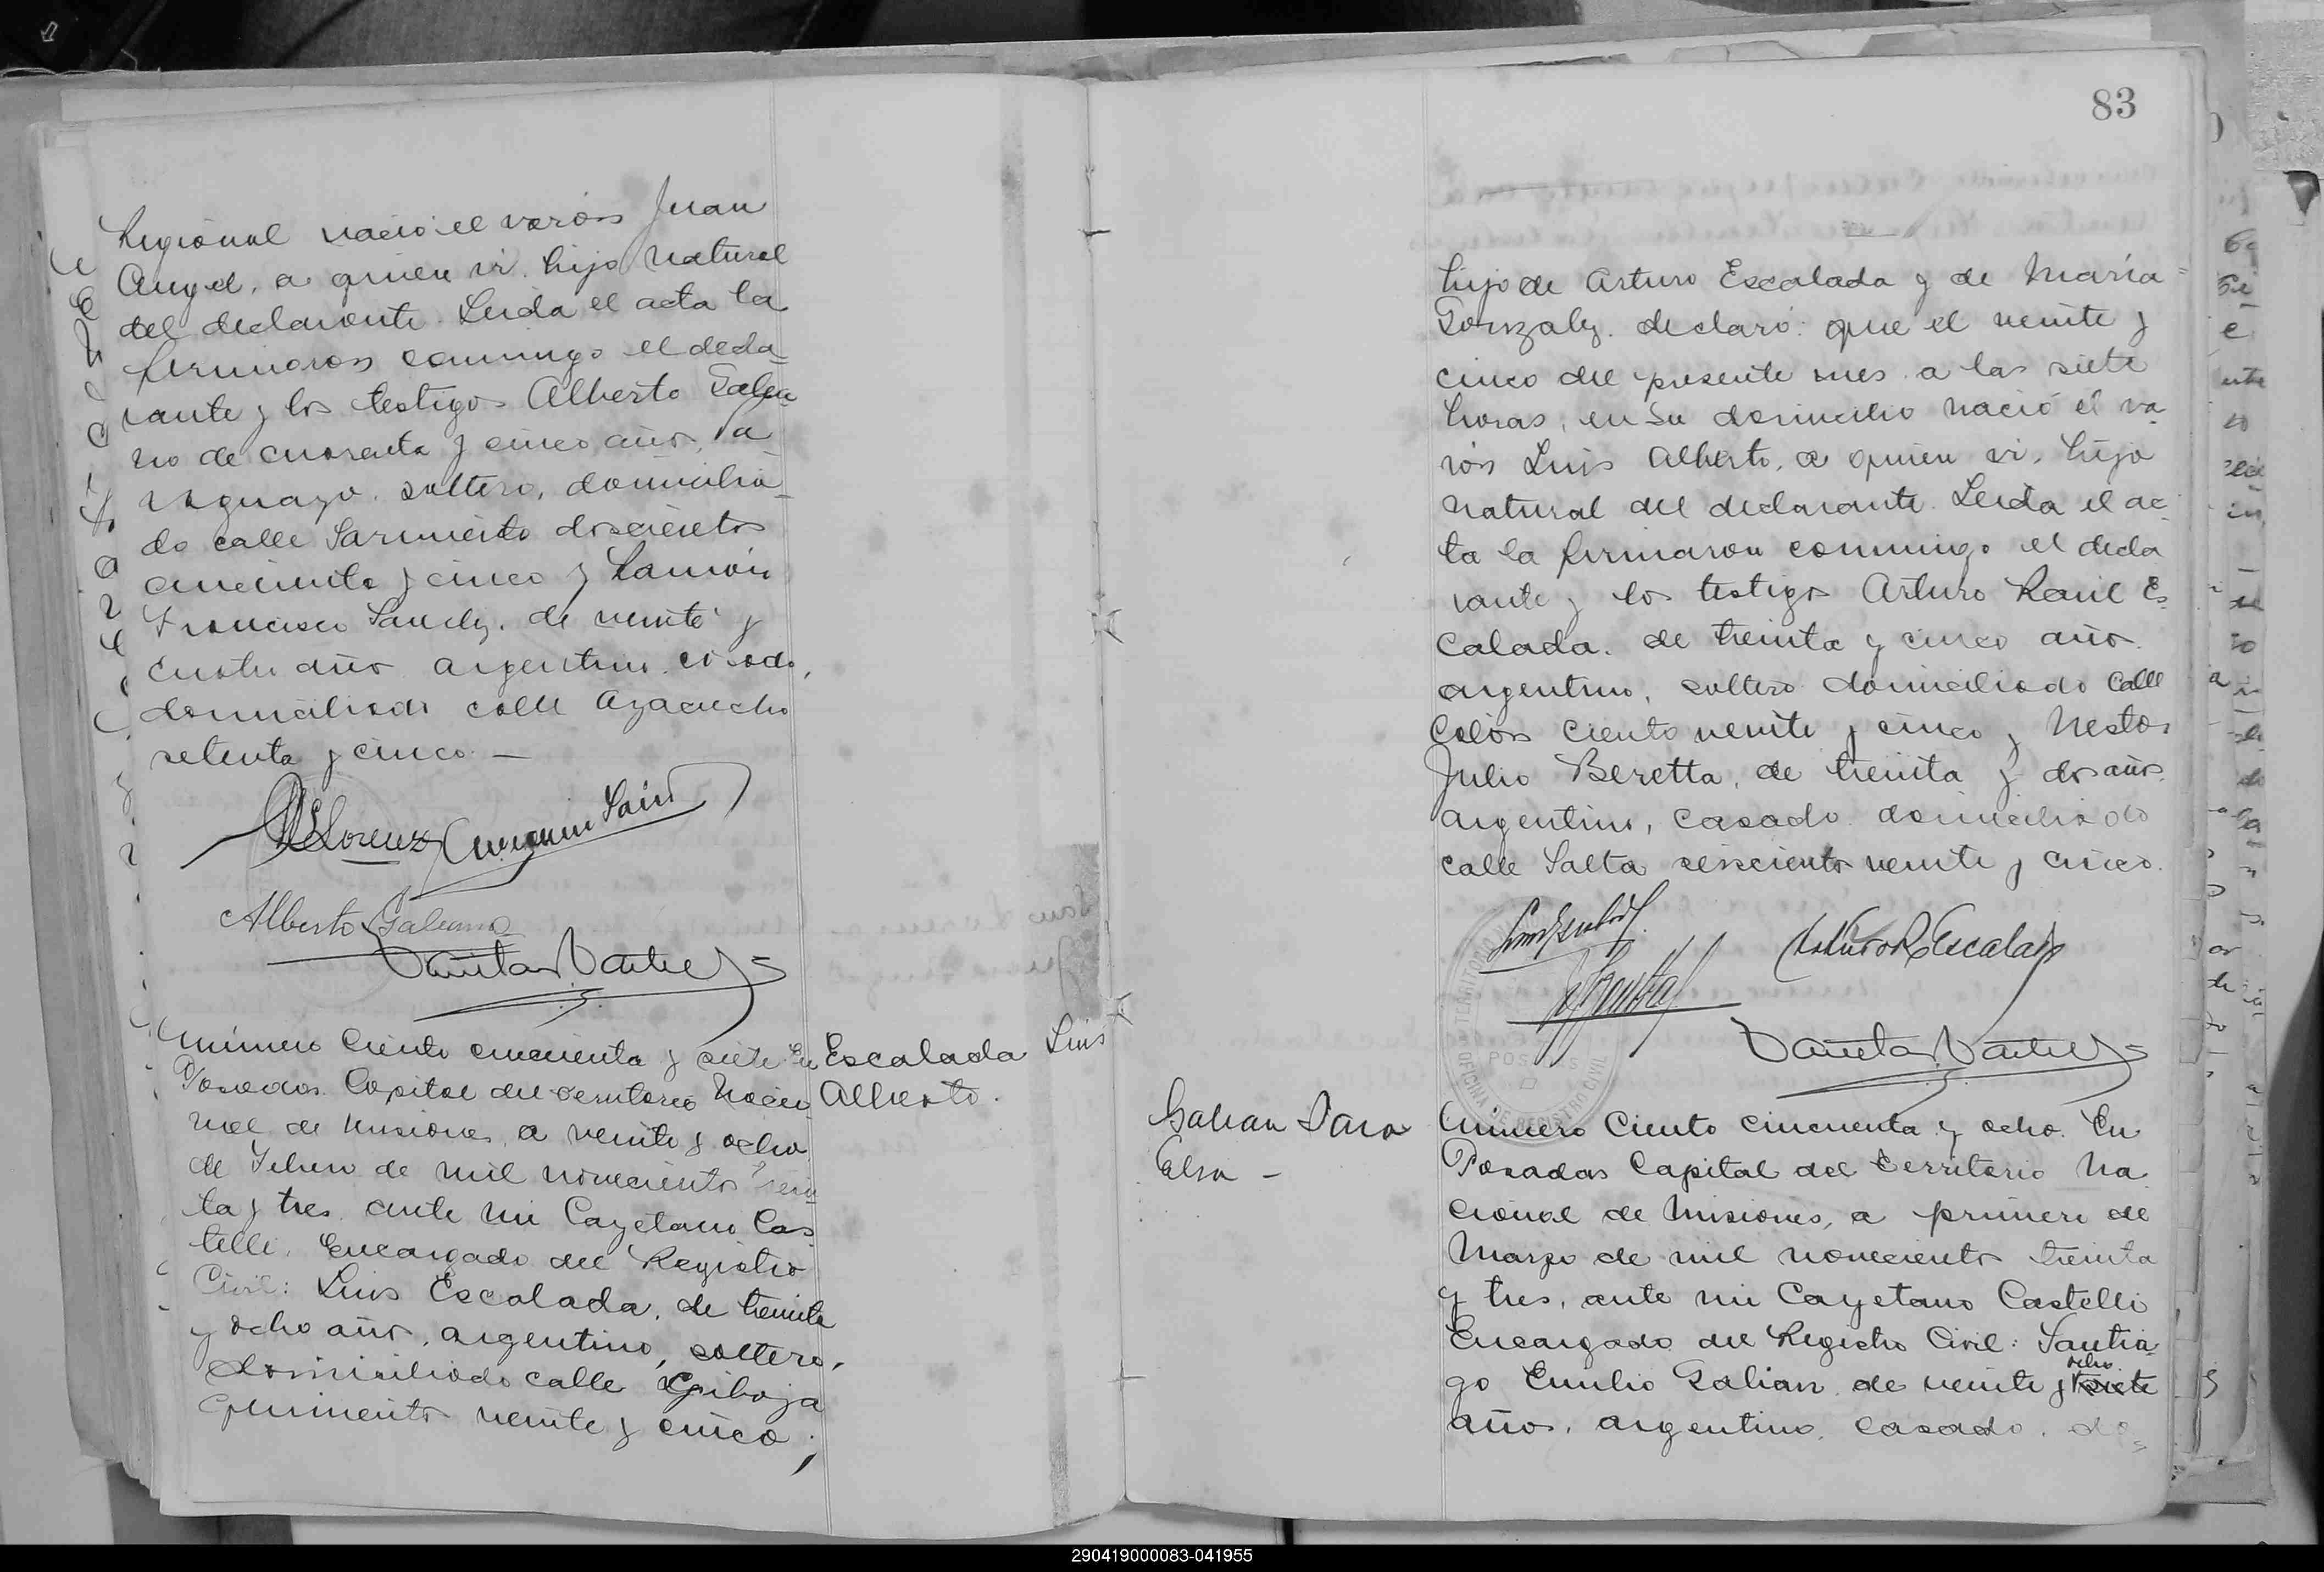 Regional nació el varón Juan
Angel, a quien vi. hijo natural
del declarante. Leida el acta la
firmaron conmigo el decla-
rante y los testigos Alberto Galea
no de cuarenta y cinco años, Pa
raguayo, soltero, domicilia-
do calle Sarmiento doscientos
cincuenta y cinco y Ramón
Francisco Sanchez, de veinte y
cuatro años argentino, casado,
domiciliado calle Ayacucho
setenta y cinco —
Alberto Galeano
Número Ciento cincuenta y siete. En
Posadas Capital del territorio Nacio
nal de Misiones, a veinte y ocho
de Febrero de mil novecientos trein
ta y tres, ante mi Cayetano Cas
telli, Encargado del Registro
Civil: Luis Escalada, de treinta
y ocho años, argentino, soltero,
domiciliado calle
quinientos veinte y cinco;
Escalada Luis
Alberto.
83
hijo de Arturo Escalada y de María
Gonzalez. declaró: que el veinte y
cinco del presente mes a las siete
horas, en su domicilio nació el va
rón Luis Alberto, a quien vi, hijo
natural del declarante. Leida el ac
ta la firmaron conmigo el decla
rante y los testigos Arturo Raúl Es
calada, de treinta y cinco años
argentino, soltero domiciliado calle
Colón ciento veinte y cinco y Nestor
Julio Beretta, de treinta y dos años
argentino, casado domiciliado
calle Salta seiscientos veinte y cinco.
Arturo R Escalada
TERRITORIO
POSADAS
OFICINA DE REGISTRO CIVIL
Galian Sara
Elsa —
Número Ciento cincuenta y ocho. En
Posadas Capital del territorio Na
cional de Misiones, a primero de
Marzo de mil novecientos treinta
y tres, ante mi Cayetano Castelli
Encargado del Registro Civil: Santia-
go Emilio Galian, de veinte y siete ocho
años, argentino, casado, do=
290419000083-041955